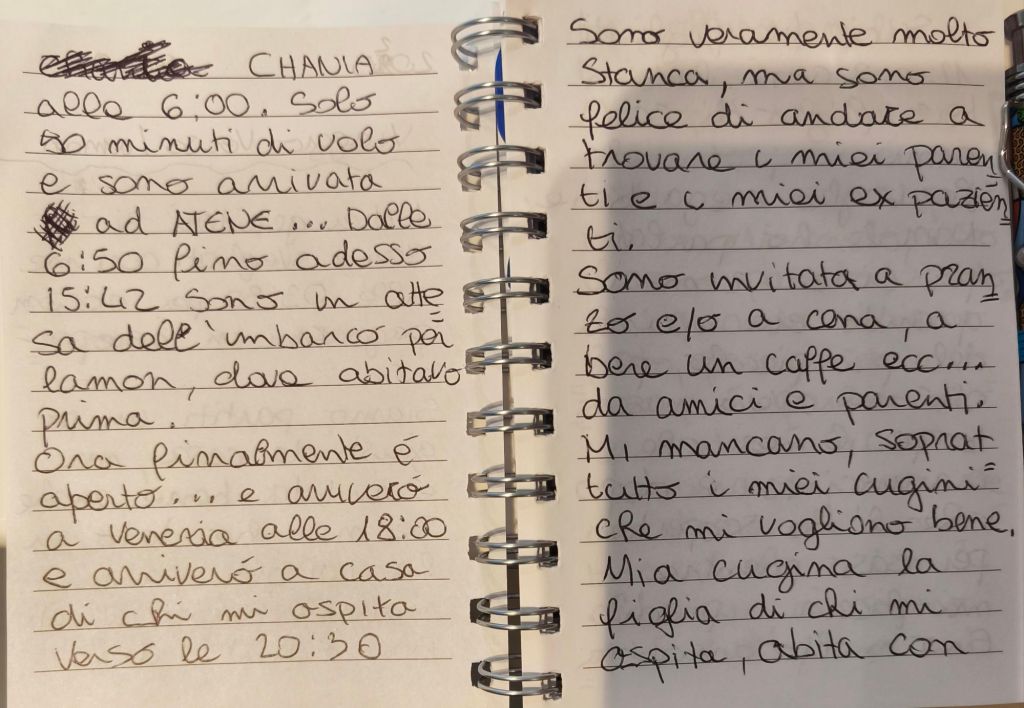 CHANIA
alle 6:00. Solo
50 minuti di volo
e sono arrivata
ad ATENE ... Dalle
6:50 fino adesso
15:42 sono in atte
sa dell'imbarco per
lamon, dove abitavo
prima.
Ora finalmente é
aperto... e arriveró
a Venezia alle 18:00
e arriveró a casa
di chi mi ospita
verso le 20:30
Sono veramente molto
stanca, ma sono
felice di andare a
trovare i miei paren
ti e i miei ex pazien
ti.
Sono invitata a pran
zo e/o a cena, a
bere un caffe ecc...
da amici e parenti.
Mi mancano, soprat=
tutto i miei cugini
che mi vogliono bene.
Mia cugina la
figlia di chi mi
ospita, abita con